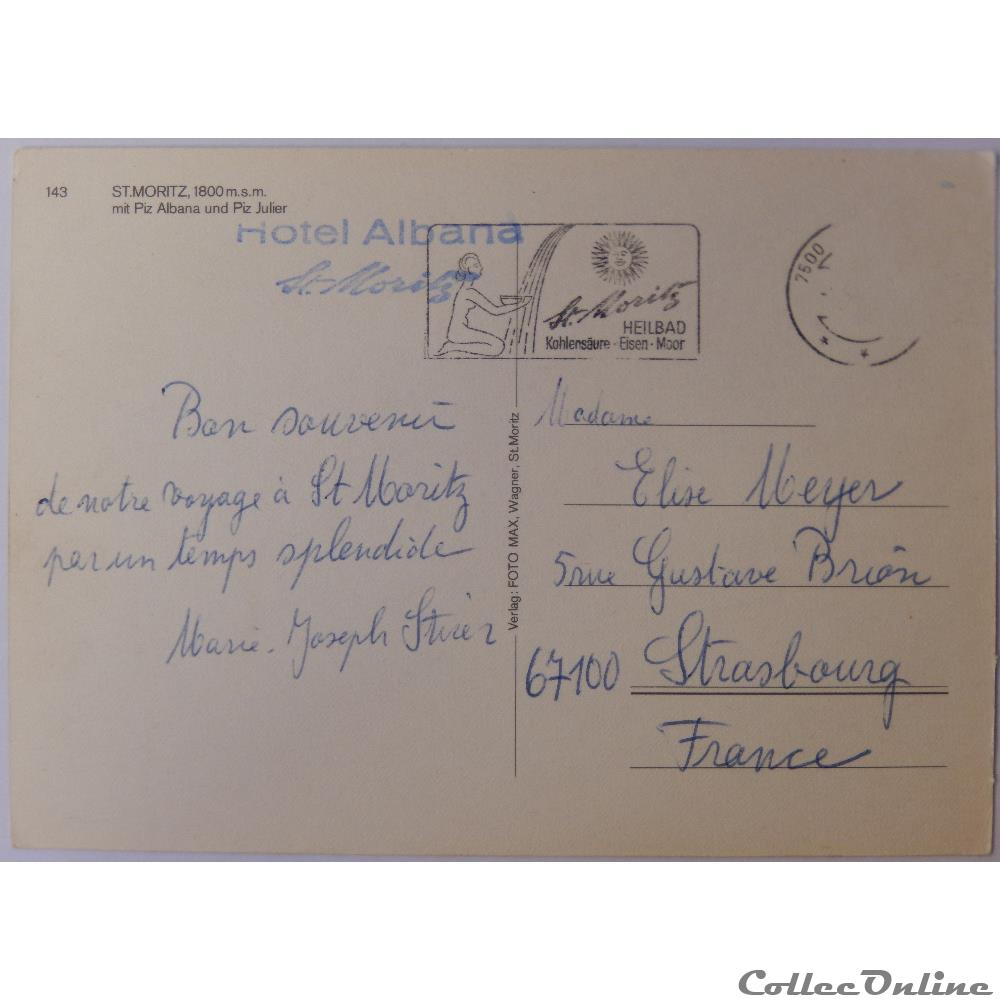 143 ST.MORITZ, 1800 m.s.m.
mit Piz Albana und Piz Julier
Hotel Albana
St. Moritz
St. Moritz
HEILBAD
Kohlensäure - Eisen - Moor
7500
Bon souvenir
de notre voyage à St Moritz
par un temps splendide
Marie-Joseph
Verlag: FOTO MAX, Wagner, St.Moritz
Madame
Elise Meyer
5 rue Gustave Brion
67100 Strasbourg
France
CollecOnline